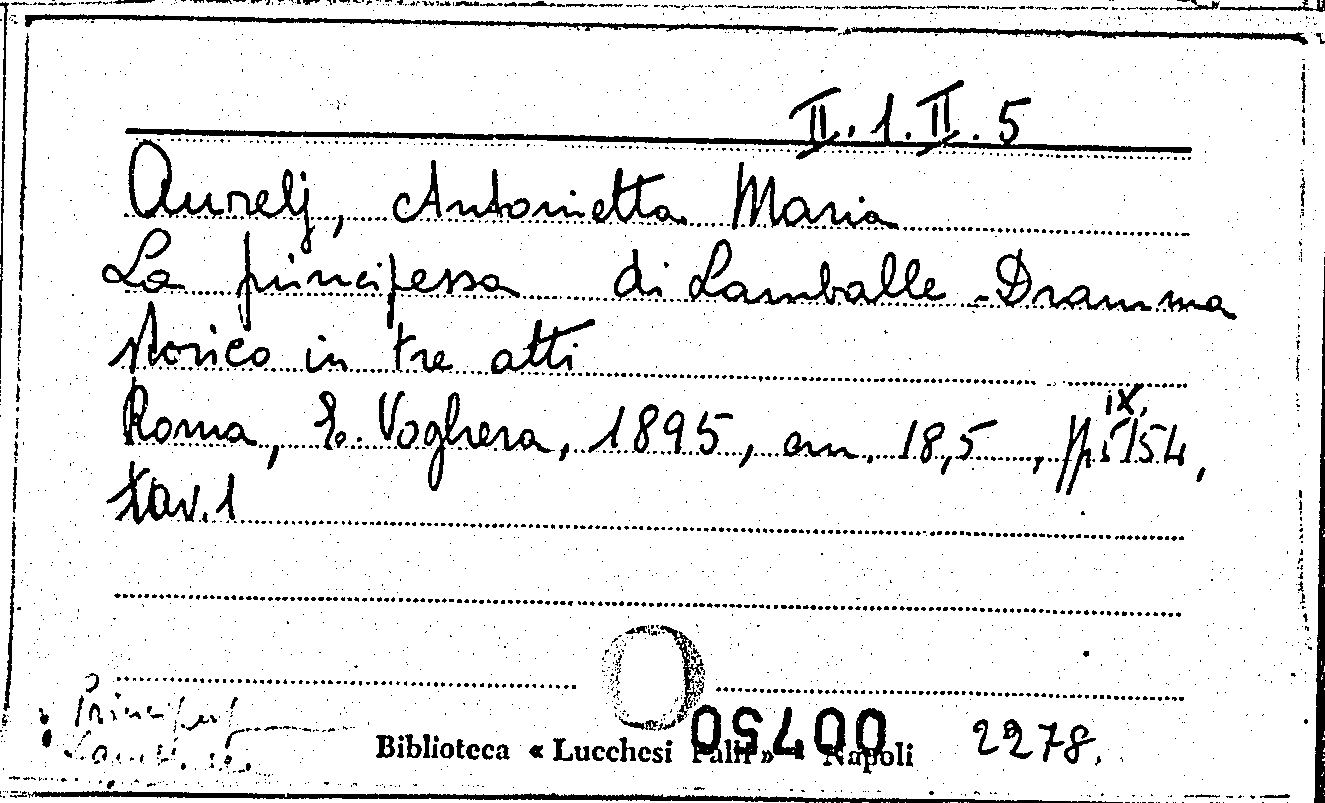 II.1.II.5
Aurelj, Antonietta Maria
La principessa di Lamballe - Dramma
storico in tre atti
Roma, E. Voghera, 1895, cm. 18,5, pp. IX, 154,
tav. 1
Biblioteca « Lucchesi Palli » Napoli
2278.